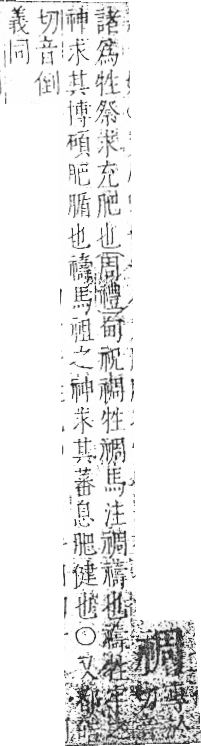 禂專於
切音
諸爲牲祭求充肥也周禮甸祝禂牲禂馬注禂禱也禱牲牢之
神求其博碩肥腯也禱馬祖之神求其蕃息肥健也○又都皓
切音倒
義同